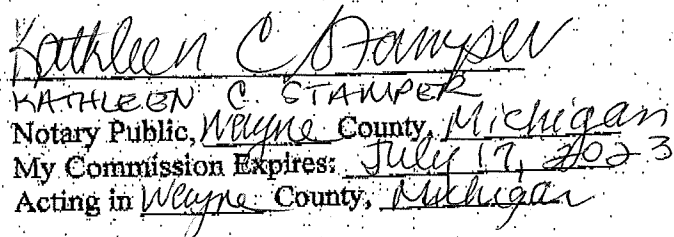 Kathleen C Stamper
KATHLEEN C. STAMPER
Notary Public, Wayne County, Michigan
My Commission Expires: July 17, 2023
Acting in Wayne County, Michigan